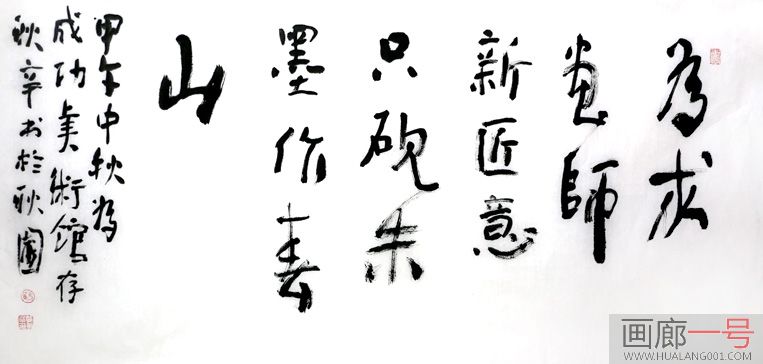 為求
畫師
新匠意
只硯朱
墨作春
山
甲午中秋為
成功美術館存
秋辛书於秋園
画廊一号
WWW.HUALANG001.COM